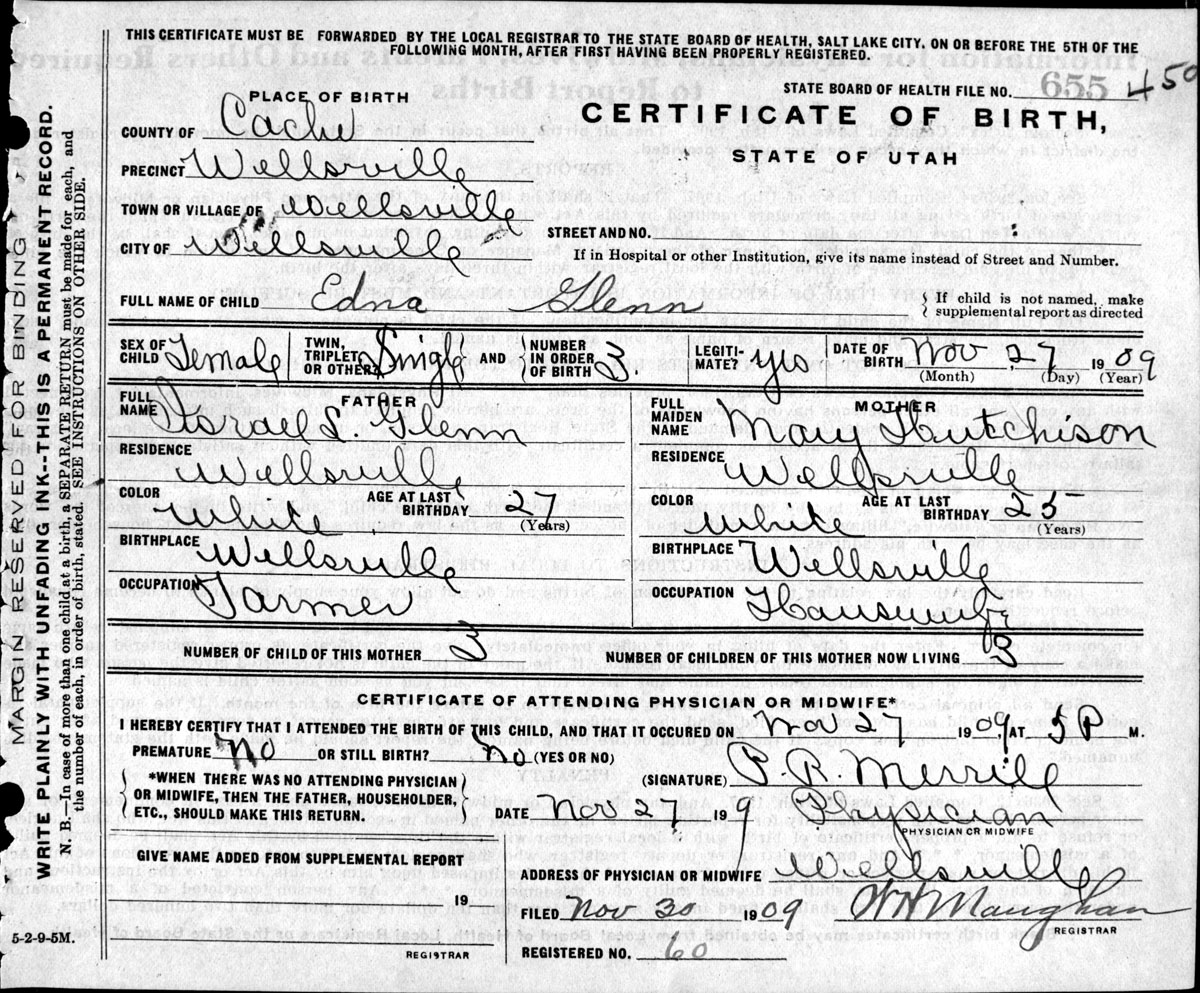 THIS CERTIFICATE MUST BE FORWARDED BY THE LOCAL REGISTRAR TO THE STATE BOARD OF HEALTH, SALT LAKE CITY, ON OR BEFORE THE 5TH OF THE
FOLLOWING MONTH, AFTER FIRST HAVING BEEN PROPERLY REGISTERED.
STATE BOARD OF HEALTH FILE NO. 450
655
PLACE OF BIRTH
CERTIFICATE OF BIRTH,
STATE OF UTAH
COUNTY OF Cache
PRECINCT Wellsville
TOWN OR VILLAGE OF Wellsville
CITY OF Wellsville
STREET AND NO.
If in Hospital or other Institution, give its name instead of Street and Number.
FULL NAME OF CHILD Edna Glenn
If child is not named, make
supplemental report as directed
SEX OF CHILD Female
TWIN, TRIPLET, OR OTHER? Single AND NUMBER IN ORDER OF BIRTH 3.
LEGITI-MATE? yes
DATE OF BIRTH Nov 27 1909
(Month) (Day) (Year)
FATHER
FULL NAME Israel L. Glenn
RESIDENCE Wellsville
COLOR White AGE AT LAST BIRTHDAY 27 (Years)
BIRTHPLACE Wellsville
OCCUPATION Farmer
MOTHER
FULL MAIDEN NAME Mary Hutchison
RESIDENCE Wellsville
COLOR White AGE AT LAST BIRTHDAY 25 (Years)
BIRTHPLACE Wellsville
OCCUPATION Housewife
NUMBER OF CHILD OF THIS MOTHER 3
NUMBER OF CHILDREN OF THIS MOTHER NOW LIVING 3
CERTIFICATE OF ATTENDING PHYSICIAN OR MIDWIFE*
I HEREBY CERTIFY THAT I ATTENDED THE BIRTH OF THIS CHILD, AND THAT IT OCCURED ON Nov 27 1909, AT 5 P M.
PREMATURE No OR STILL BIRTH? No (YES OR NO)
*WHEN THERE WAS NO ATTENDING PHYSICIAN
OR MIDWIFE, THEN THE FATHER, HOUSEHOLDER,
ETC., SHOULD MAKE THIS RETURN.
(SIGNATURE) P. R. Merrill
DATE Nov 27 19 9 Physician
PHYSICIAN OR MIDWIFE
GIVE NAME ADDED FROM SUPPLEMENTAL REPORT
19
REGISTRAR
ADDRESS OF PHYSICIAN OR MIDWIFE Wellsville
FILED Nov 30 1909 W H Maughan
REGISTRAR
REGISTERED NO. 60
5-2-9-5M.
MARGIN RESERVED FOR BINDING
WRITE PLAINLY WITH UNFADING INK--THIS IS A PERMANENT RECORD.
N. B.—In case of more than one child at a birth, a SEPARATE RETURN must be made for each, and
the number of each, in order of birth, stated. SEE INSTRUCTIONS ON OTHER SIDE.